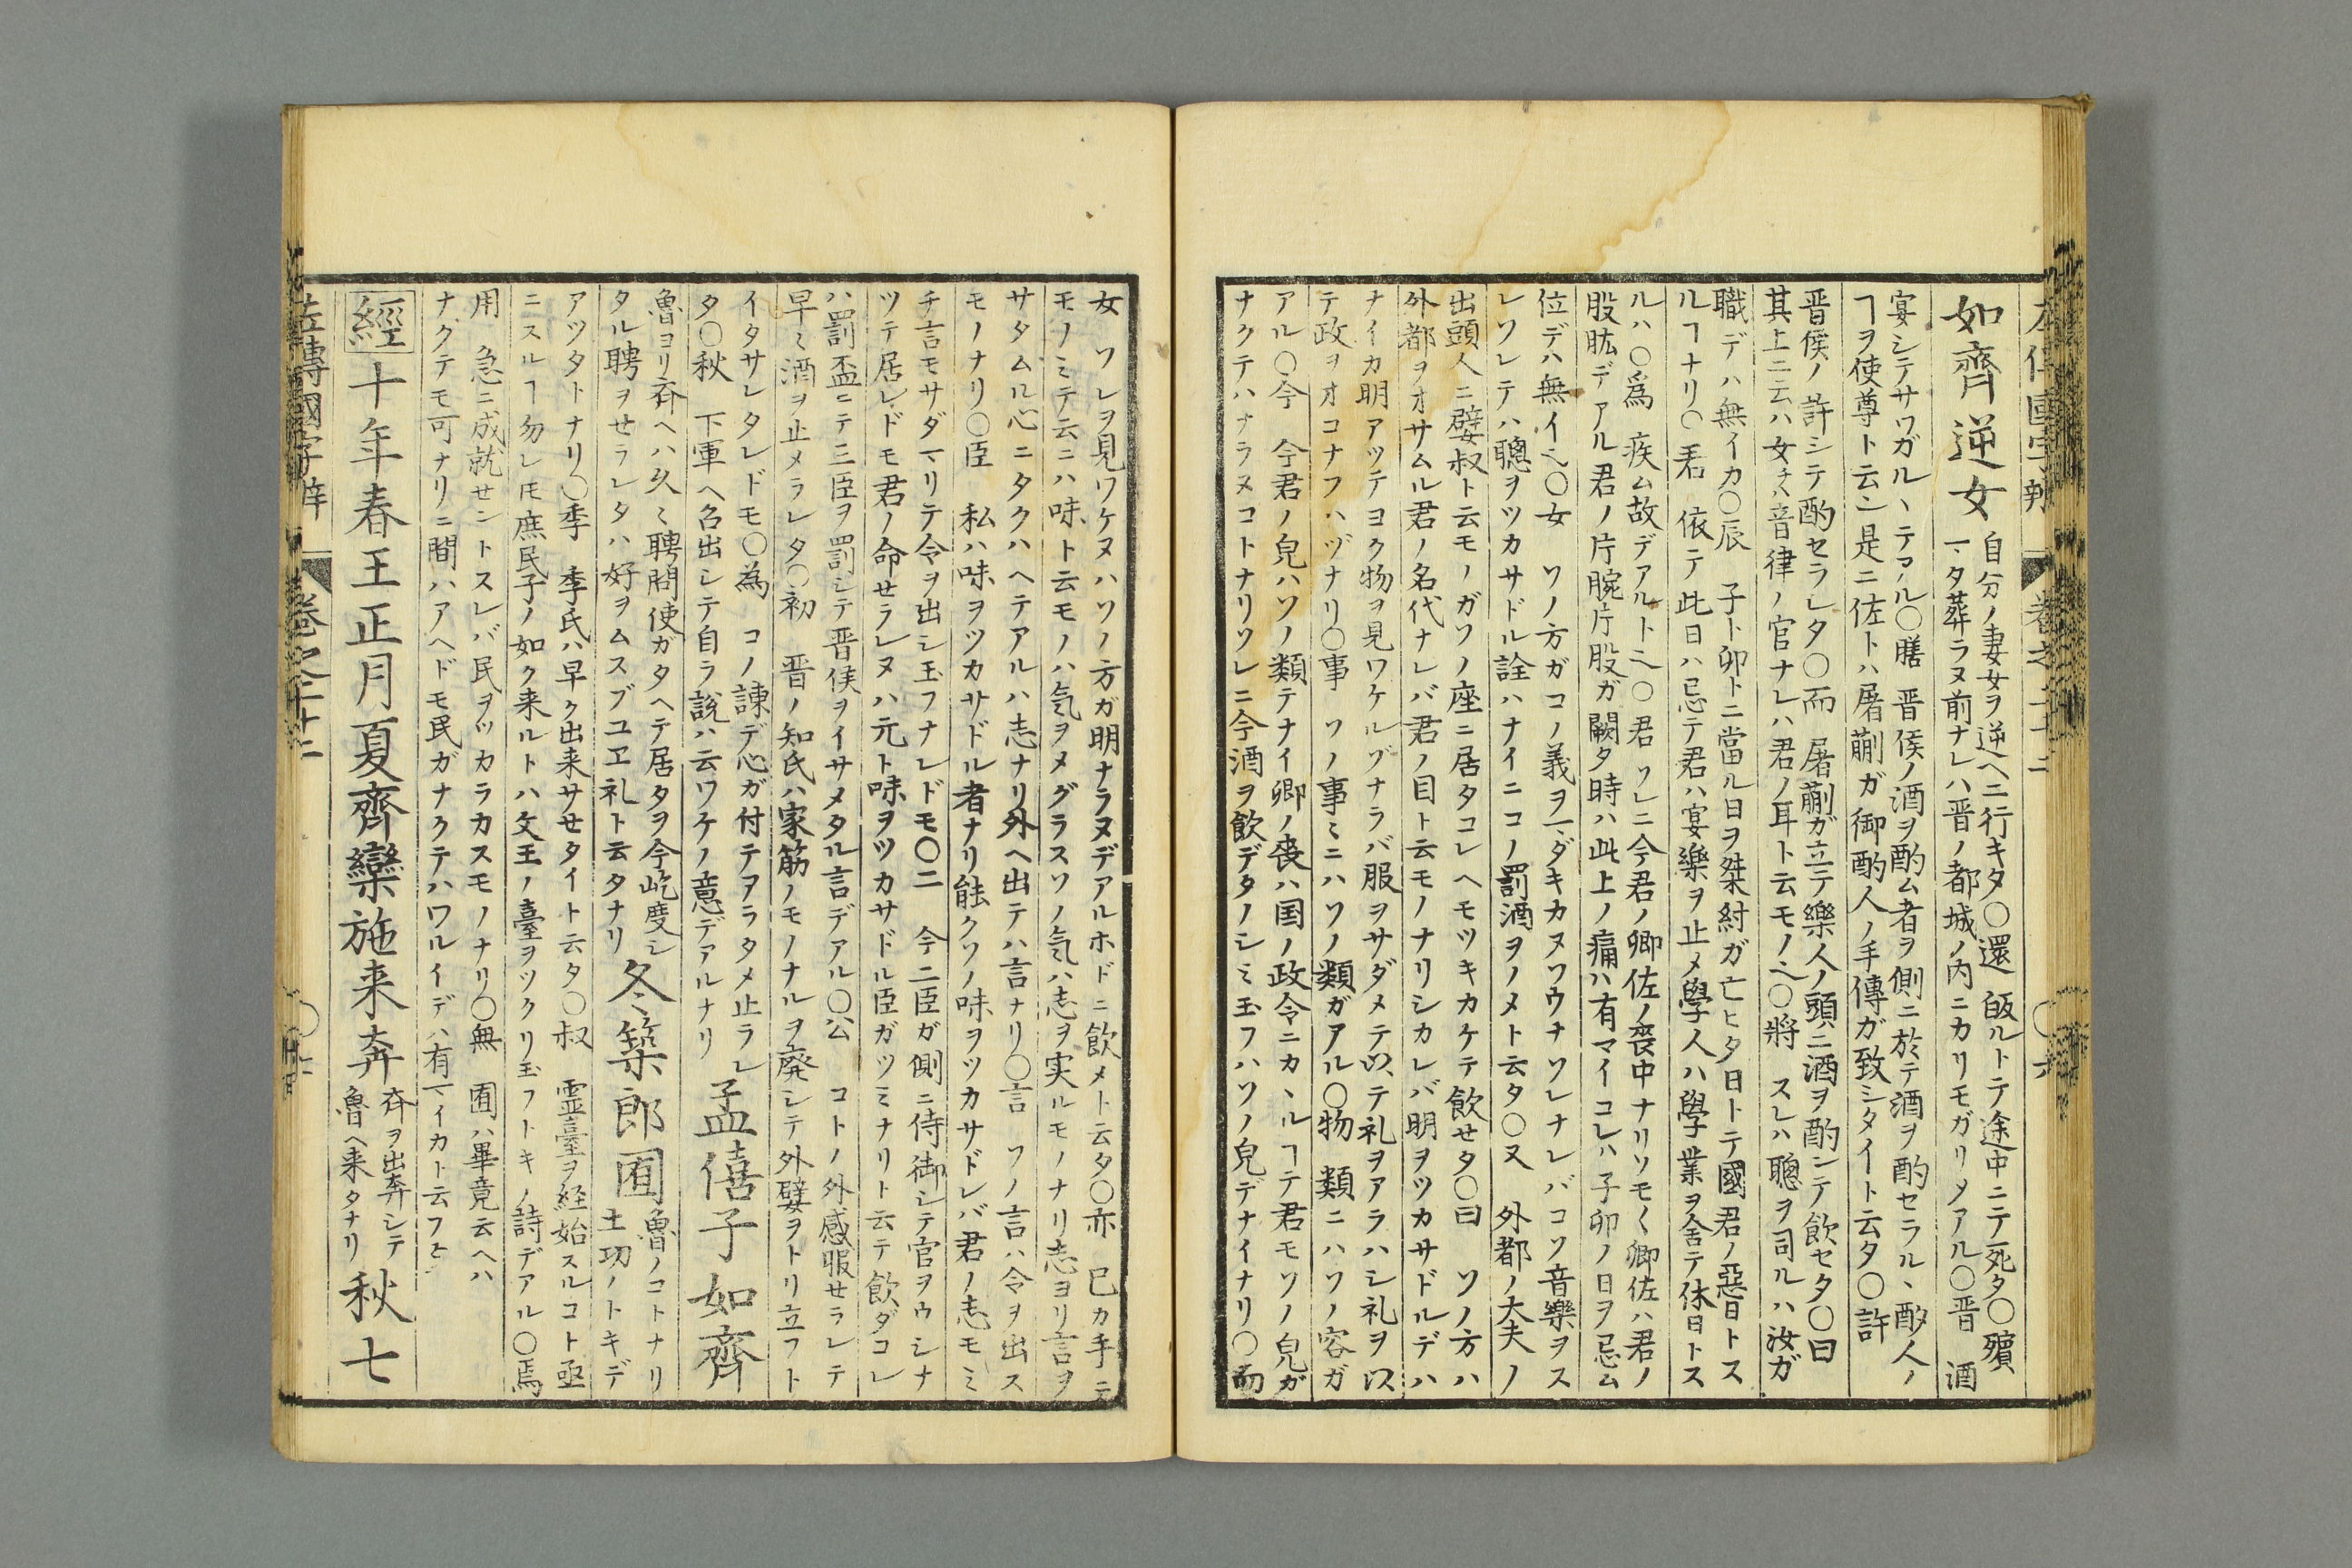 如齊逆女
自分ノ妻女ヲ逆ヘニ行キタ〇還 皈ルトテ途中ニテ死タ〇殯
一タ葬ラヌ前ナレハ晋ノ都城ノ内ニカリモガリメアル〇晋 酒
宴シテサワガルヽテアル〇膳 晋侯ノ酒ヲ酌ム者ヲ側ニ於テ酒ヲ酌セラルヽ酌人ノ
ヿヲ使尊ト云 是ニ佐トハ屠蒯ガ御酌人ノ手傳ガ致シタイト云タ〇許
晋侯ノ許シテ酌セラレタ〇而 屠蒯ガ立テ樂人ノ頭ニ酒ヲ酌ンテ飲セタ〇曰
其上ニ云ハ女ナハ音律ノ官ナレハ君ノ耳ト云モノ〇將 スレハ聰ヲ司ルハ汝ガ
職デハ無イカ〇辰 子ト卯トニ當ル日ヲ桀紂ガ亡ヒタ日トテ國君ノ惡日トス
ルヿナリ〇君 依テ此日ハ忌テ君ハ宴樂ヲ止メ學人ハ學業ヲ舍テ休日トス
ルハ〇爲 疾ム故デアルト〇君 ソレニ今君ノ卿佐ノ喪中ナリソモ〳〵卿佐ハ君ノ
股肱デアル君ノ片腕片股ガ闕タ時ハ此上ノ痛ハ有マイコレハ子卯ノ日ヲ忌ム
位デハ無イ〇女 ソノ方ガコノ義ヲ一ダキカヌソウナソレナレバコソ音樂ヲス
レソレテハ聰ヲツカサドル詮ハナイニコノ罰酒ヲノメト云タ〇又 外都ノ大夫ノ
出頭人ニ嬖叔ト云モノガソノ座ニ居タコレヘモツキカケテ飲セタ〇曰 ソノ方ハ
外都ヲオサムル君ノ名代ナレバ君ノ目ト云モノナリシカレバ明ヲツカサドルデハ
ナイカ明アツテヨク物ヲ見ワケルヅナラバ服ヲサダメテ以テ礼ヲアラハシ礼ヲ以
テ政ヲオコナフハヅナリ〇事 ソノ事ミニハソノ類ガアル〇物 類ニハソノ容ガ
アル〇今 今君ノ皃ハソノ類テナイ卿ノ喪ハ国ノ政令ニカヽルヿテ君モソノ皃ガ
ナクテハナラヌコトナリソレニ今酒ヲ飲デタノシミ玉フハソノ皃デナイナリ〇而
女 ソレヲ見ワケヌハソノ方ガ明ナラヌデアルホドニ飲メト云タ〇亦 已カ手ニテ
モノミテ云ニハ味ト云モノハ気ヲメグラスソノ気ハ志ヲ実ルモノナリ志ヨリ言ヲ
サタムル心ニタクハヘテアルハ志ナリ外ヘ出テハ言ナリ〇言 ソノ言ハ令ヲ出ス
モノナリ〇臣 私ハ味ヲツカサドル者ナリ能クソノ味ヲツカサドレバ君ノ志モミ
チ言モサダマリテ令ヲ出シ玉フナレドモ〇二 今二臣ガ側ニ侍御シテ官ヲウシナ
ツテ居レドモ君ノ命セラレヌハ元ト味ヲツカサドル臣ガツミナリト云テ飲ダコレ
ハ罰盃ニテ三臣ヲ罰シテ晋侯ヲイサメタル言デアル〇公 コトノ外感服セラレテ
早ミ酒ヲ止メラレタ〇初 晋ノ知氏ハ家筋ノモノナルヲ廢シテ外嬖ヲトリ立フト
イタサレタレドモ〇為 コノ諫デ心ガ付テアラタメ止ラレ
タ〇秋 下軍ヘ召出シテ自ラ説ハ云ワケノ意デアルナリ
孟僖子如齊
魯ヨリ斉ヘハ久ミ聘問使ガタヘテ居タヲ今屹度シ
タル聘ヲせラレタハ好ヲムスブユヱ礼ト云タナリ
冬築郎囿
魯ノコトナリ
土功ノトキデ
アツタトナリ〇季 季氏ハ早ク出来サせタイト云タ〇叔 霊臺ヲ経始スルコト亟
ニスルヿ勿レモ庶民子ノ如ク来ルトハ文王ノ臺ヲツクリ玉フトキノ詩デアル〇焉
用 急ニ成就せントスレバ民ヲツカラカスモノナリ〇無 囿ハ畢竟云ヘハ
ナクテモ可ナリニ間ハアヘドモ民ガナクテハワルイデハ有マイカト云フ
經十年春王正月夏齊欒施来奔
斉ヲ出奔シテ
魯ヘ来タナリ
秋七
左傳國字辨 卷之二十二